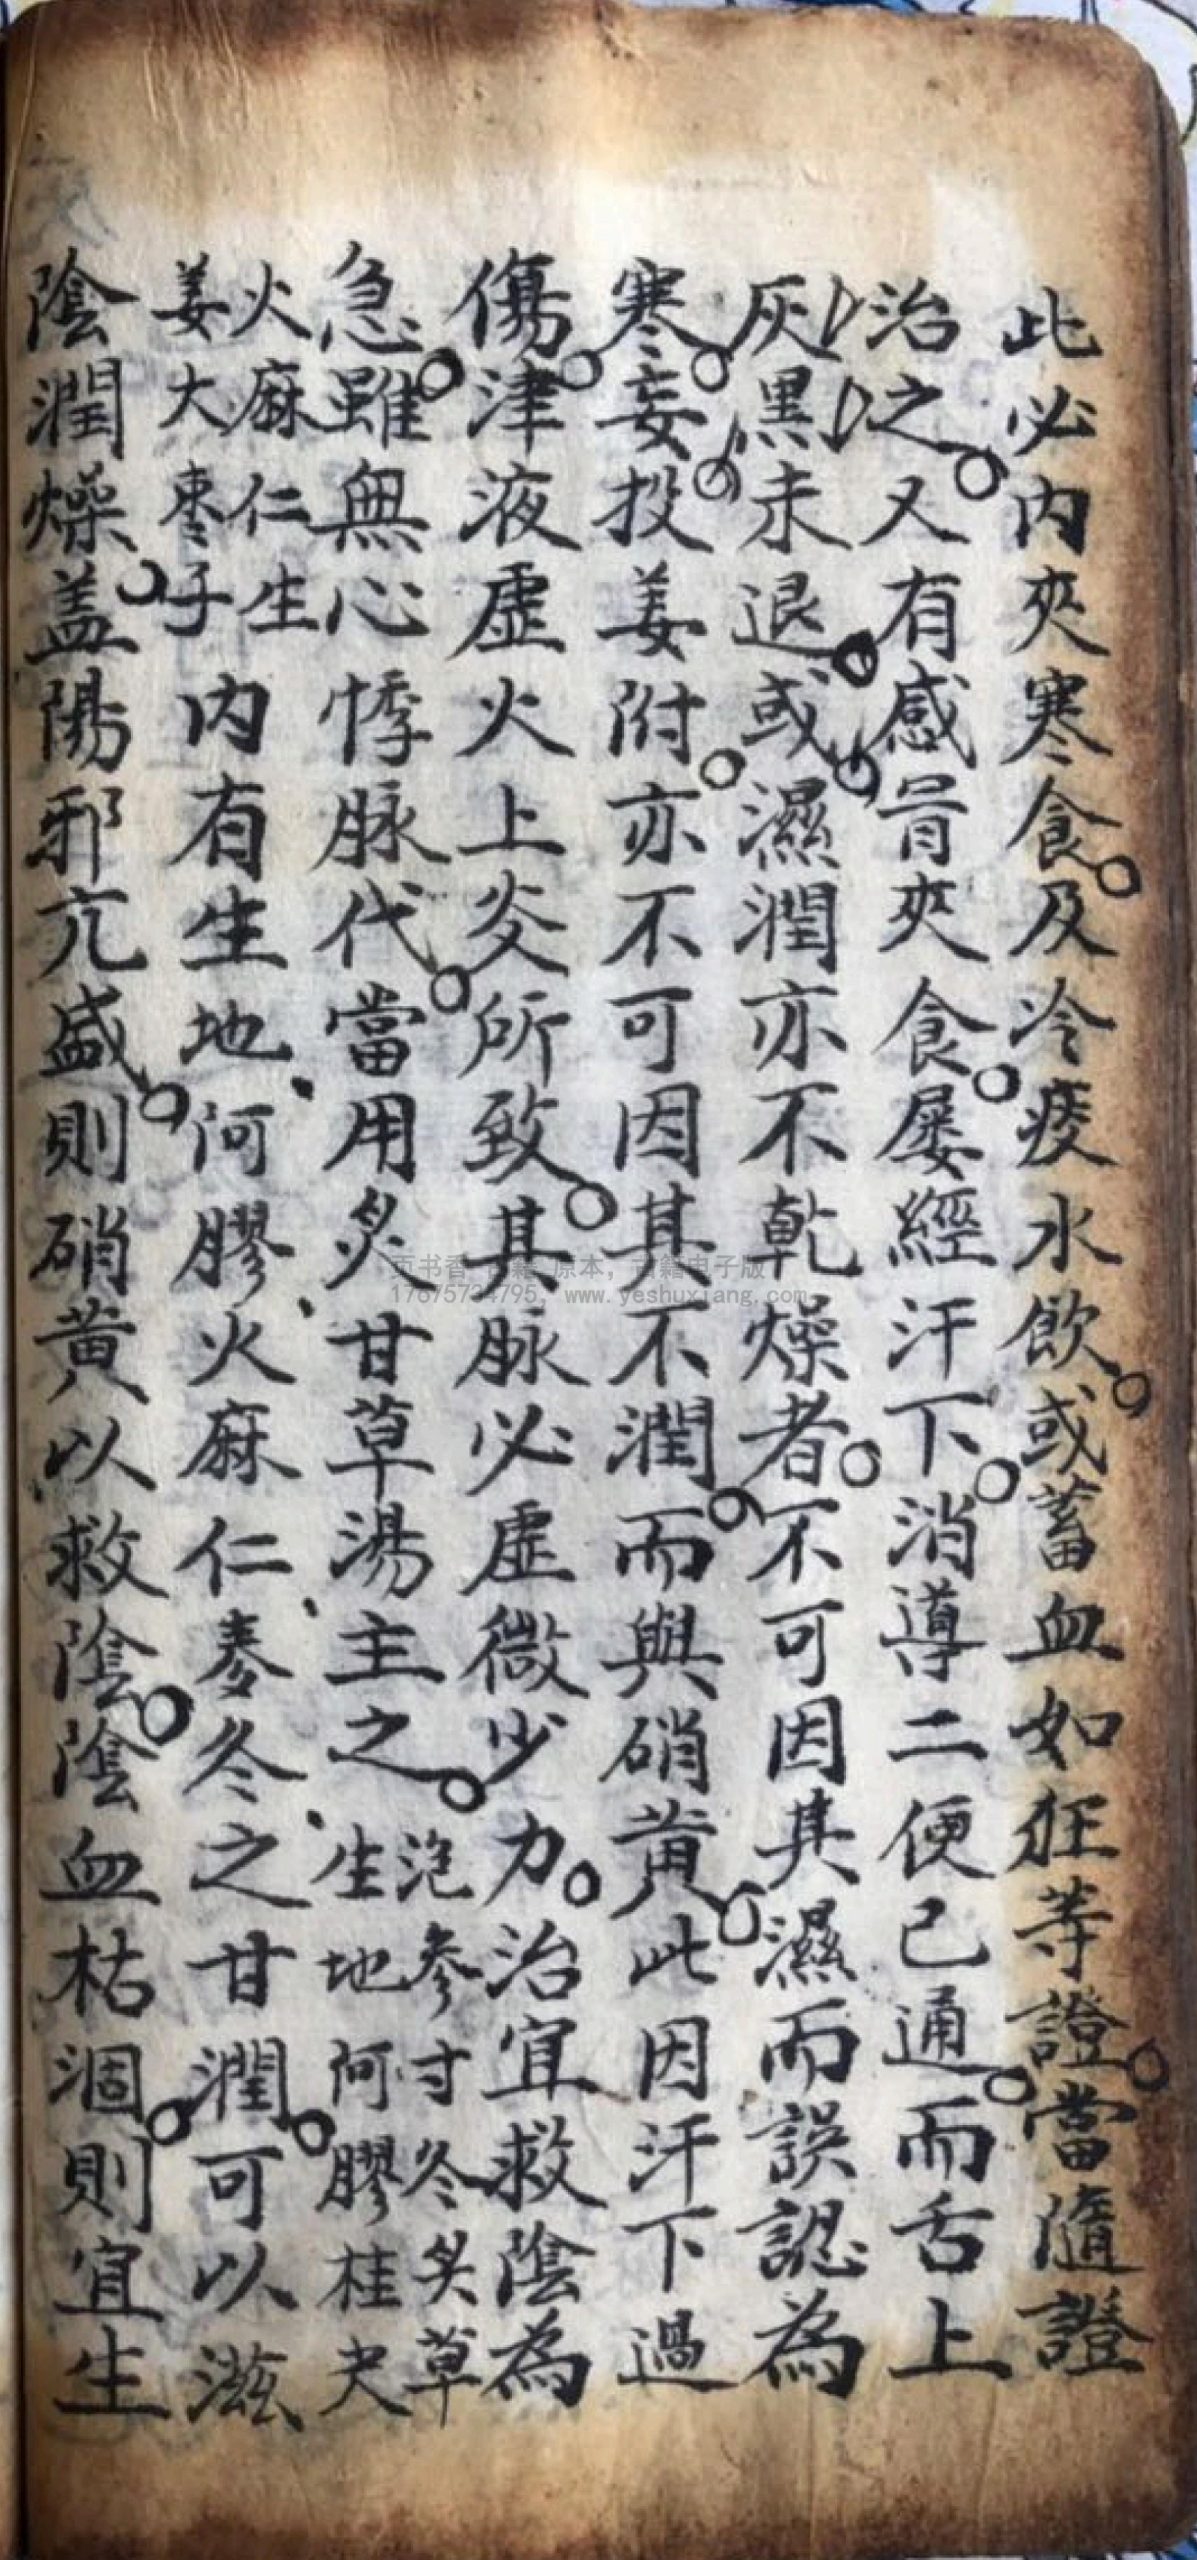 此必内夾寒食及冷痰水飲或蓄血如狂等證當隨證
治之又有感冒夾食屡經汗下消導二便已通而舌上
灰黑未退或濕潤亦不乾燥者不可因其濕而誤認為
寒妄投姜附亦不可因其不潤而與硝黄此因汗下過
傷津液虚火上炎所致其脉必虚微少力治宜救陰為
急雖無心悸脉代當用炙甘草湯主之
泡參寸冬炙草
生地阿膠桂尖
火麻仁生
姜大棗子
内有生地阿膠火麻仁麥冬之甘潤可以滋
陰潤燥盖陽邪亢盛則硝黄以救陰陰血枯涸則宜生